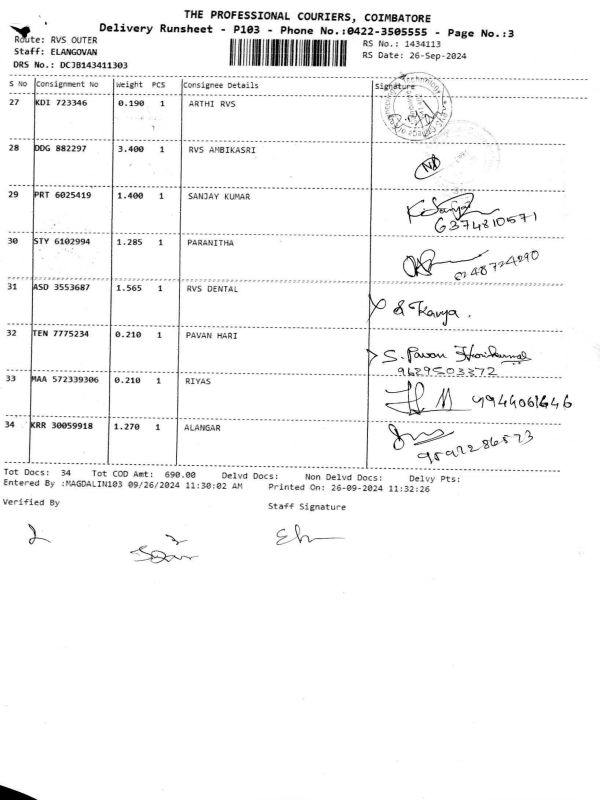 THE PROFESSIONAL COURIERS, COIMBATORE
Delivery Runsheet - P103 - Phone No.:0422-3505555 - Page No.:3
Route: RVS OUTER
RS No.: 1434113
Staff: ELANGOVAN
RS Date: 26-Sep-2024
DRS No.: DCJB143411303
S No Consignment No Weight PCS Consignee Details Signature
27 KDI 723346 0.190 1 ARTHI RVS
28 DDG 882297 3.400 1 RVS AMBIKASRI
29 PRT 6025419 1.400 1 SANJAY KUMAR
6374810571
30 STY 6102994 1.285 1 PARANITHA
31 ASD 3553687 1.565 1 RVS DENTAL
Kavya.
32 TEN 7775234 0.210 1 PAVAN HARI
S. Pavan
9629503372
33 MAA 572339306 0.210 1 RIYAS
34 KRR 30059918 1.270 1 ALANGAR
Tot Docs: 34 Tot COD Amt: 690.00 Delvd Docs: Non Delvd Docs: Delvy Pts:
Entered By :MAGDALIN103 09/26/2024 11:30:02 AM Printed On: 26-09-2024 11:32:26
Verified By
Staff Signature